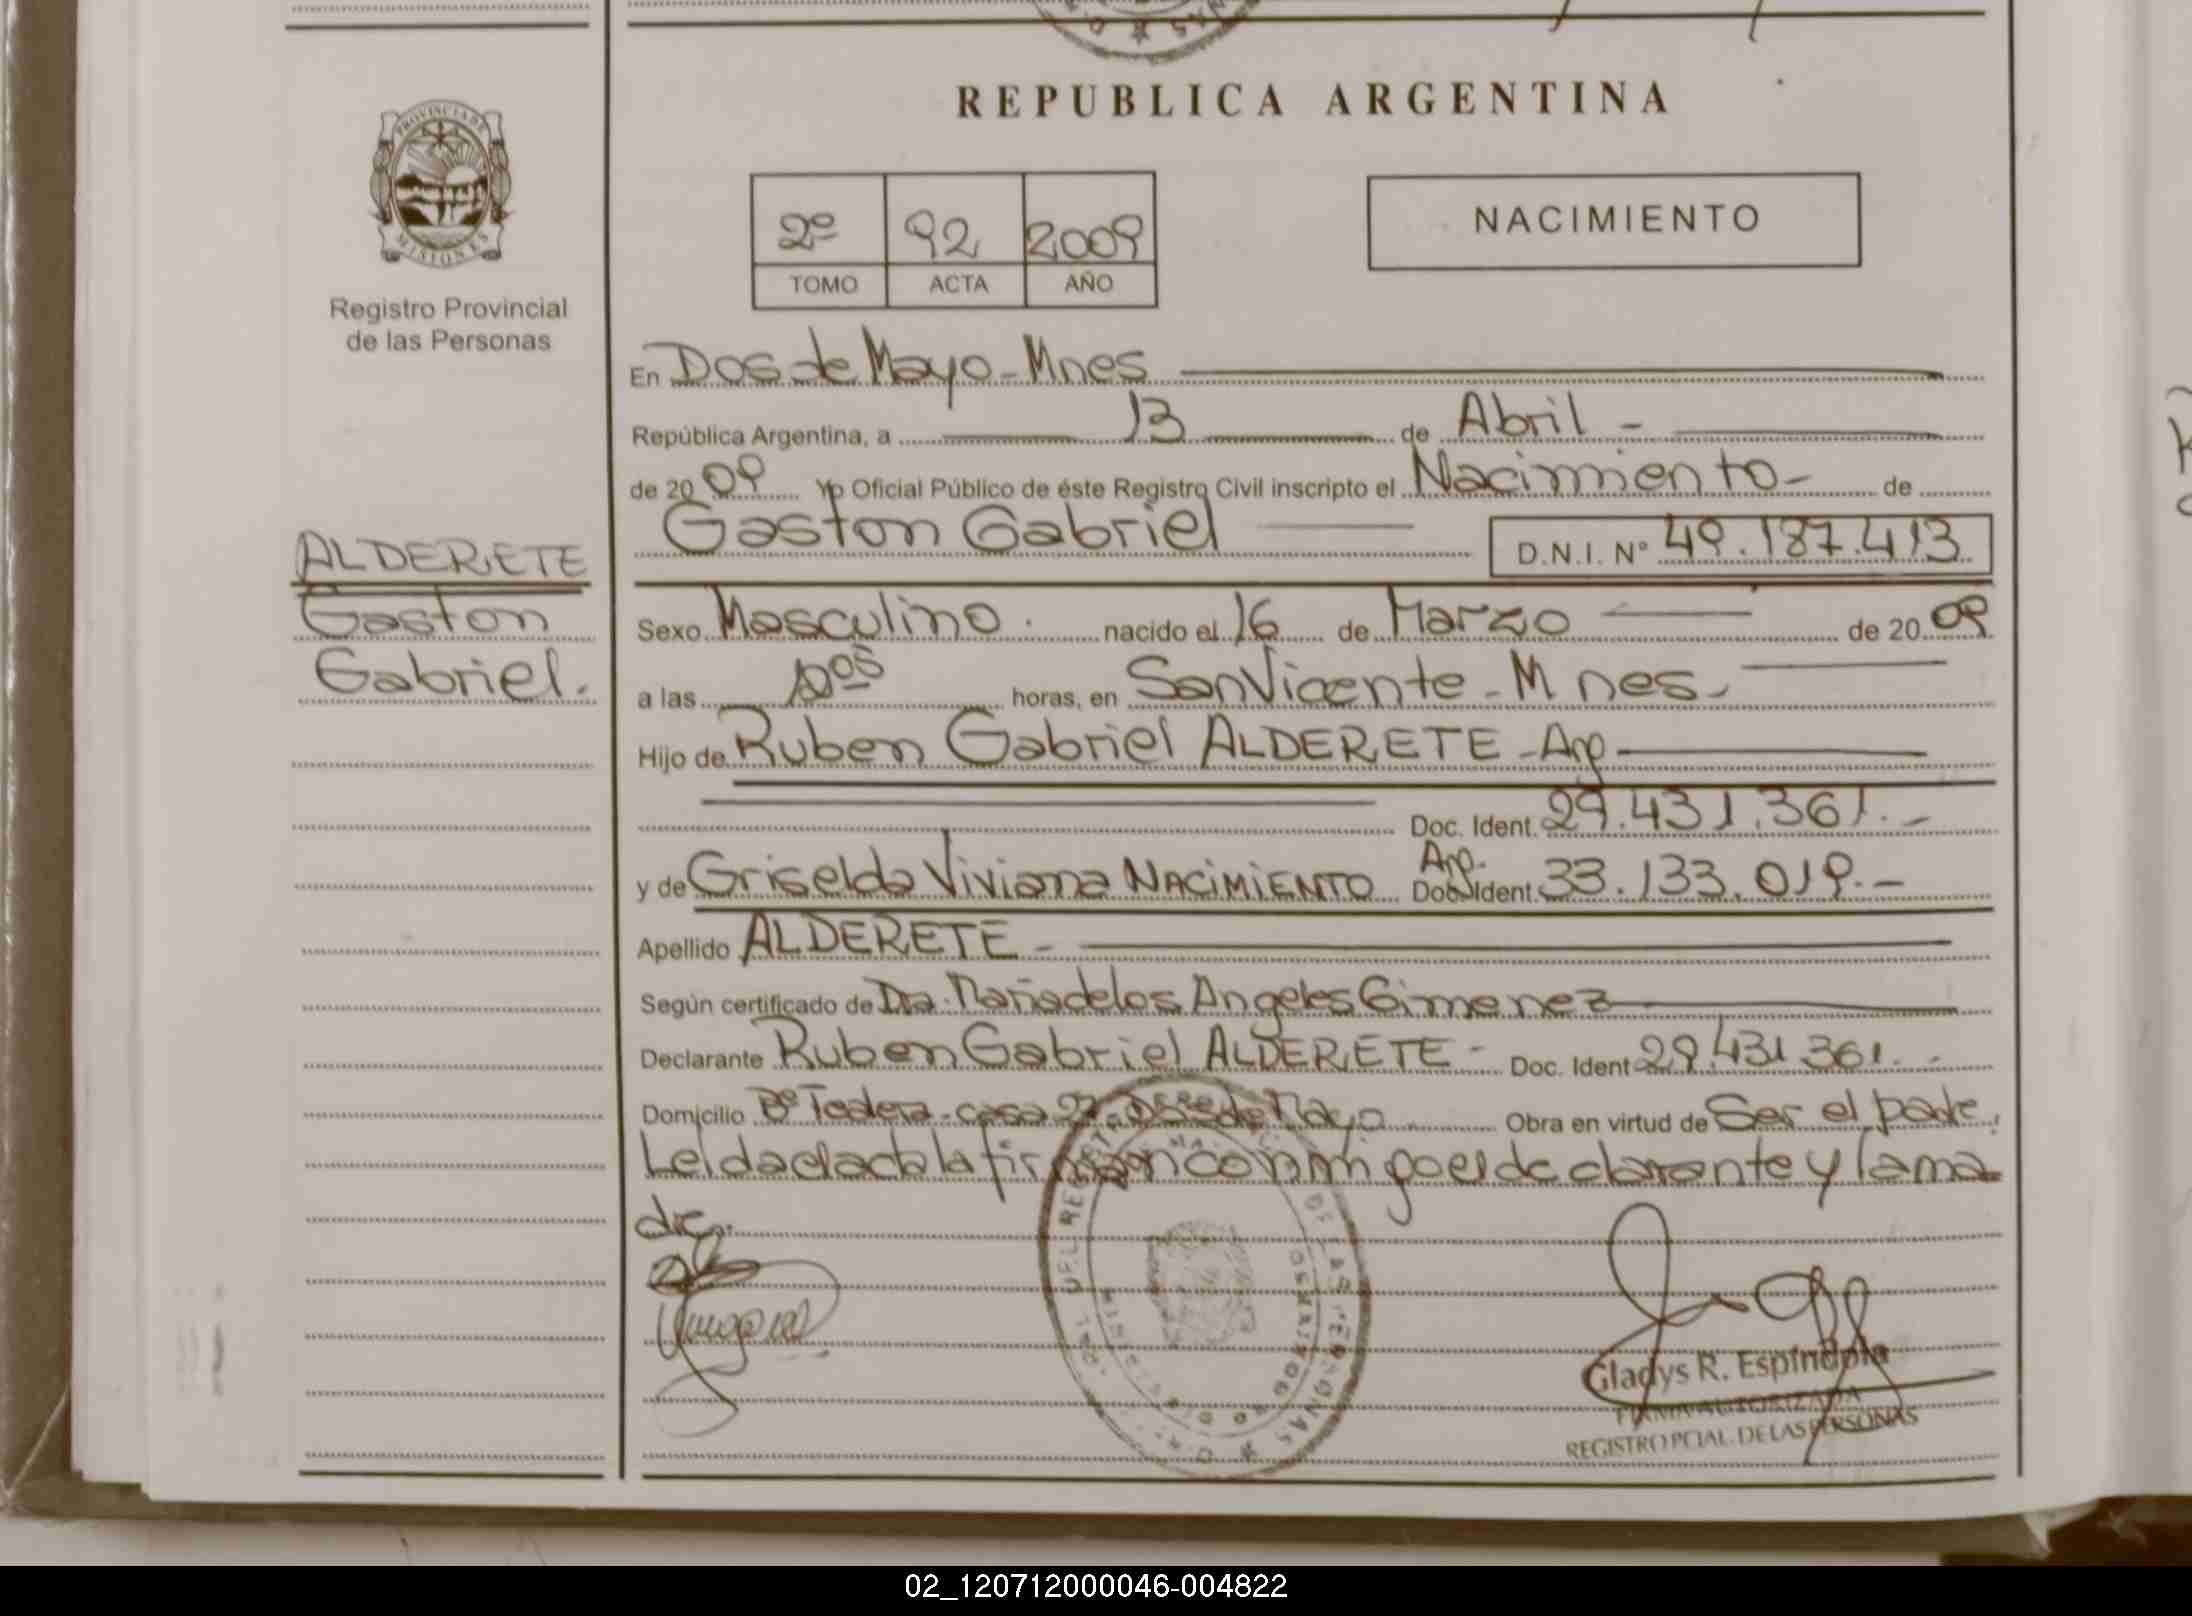 REPUBLICA ARGENTINA
PROVINCIA DE
MISIONES
Registro Provincial
de las Personas
2º 92 2009
TOMO ACTA AÑO
NACIMIENTO
En Dos de Mayo - Mnes
República Argentina, a 13 de Abril -
de 2009 Yo Oficial Público de éste Registro Civil inscripto el Nacimiento - de
Gaston Gabriel D.N.I. Nº 49.187.413
ALDERETE
Gaston
Gabriel.
Sexo Masculino. nacido el 16 de Marzo de 2009
a las Dos horas, en San Vicente - Mnes -
Hijo de Ruben Gabriel ALDERETE - Arg
Doc. Ident. 29.431.361. -
y de Griselda Viviana NACIMIENTO Arg. Doc. Ident. 33.133.019. -
Apellido ALDERETE -
Según certificado de Dra. Maria de los Angeles Gimenez
Declarante Ruben Gabriel ALDERETE - Doc. Ident 29.431.361. -
Domicilio Bº casa Dos de Mayo Obra en virtud de Ser el padre.
Leida el acta la firman conmigo el declarante y la ma
dre.
Gladys R. Espindola
FIRMA AUTORIZADA
REGISTRO PCIAL. DE LAS PERSONAS
02_120712000046-004822